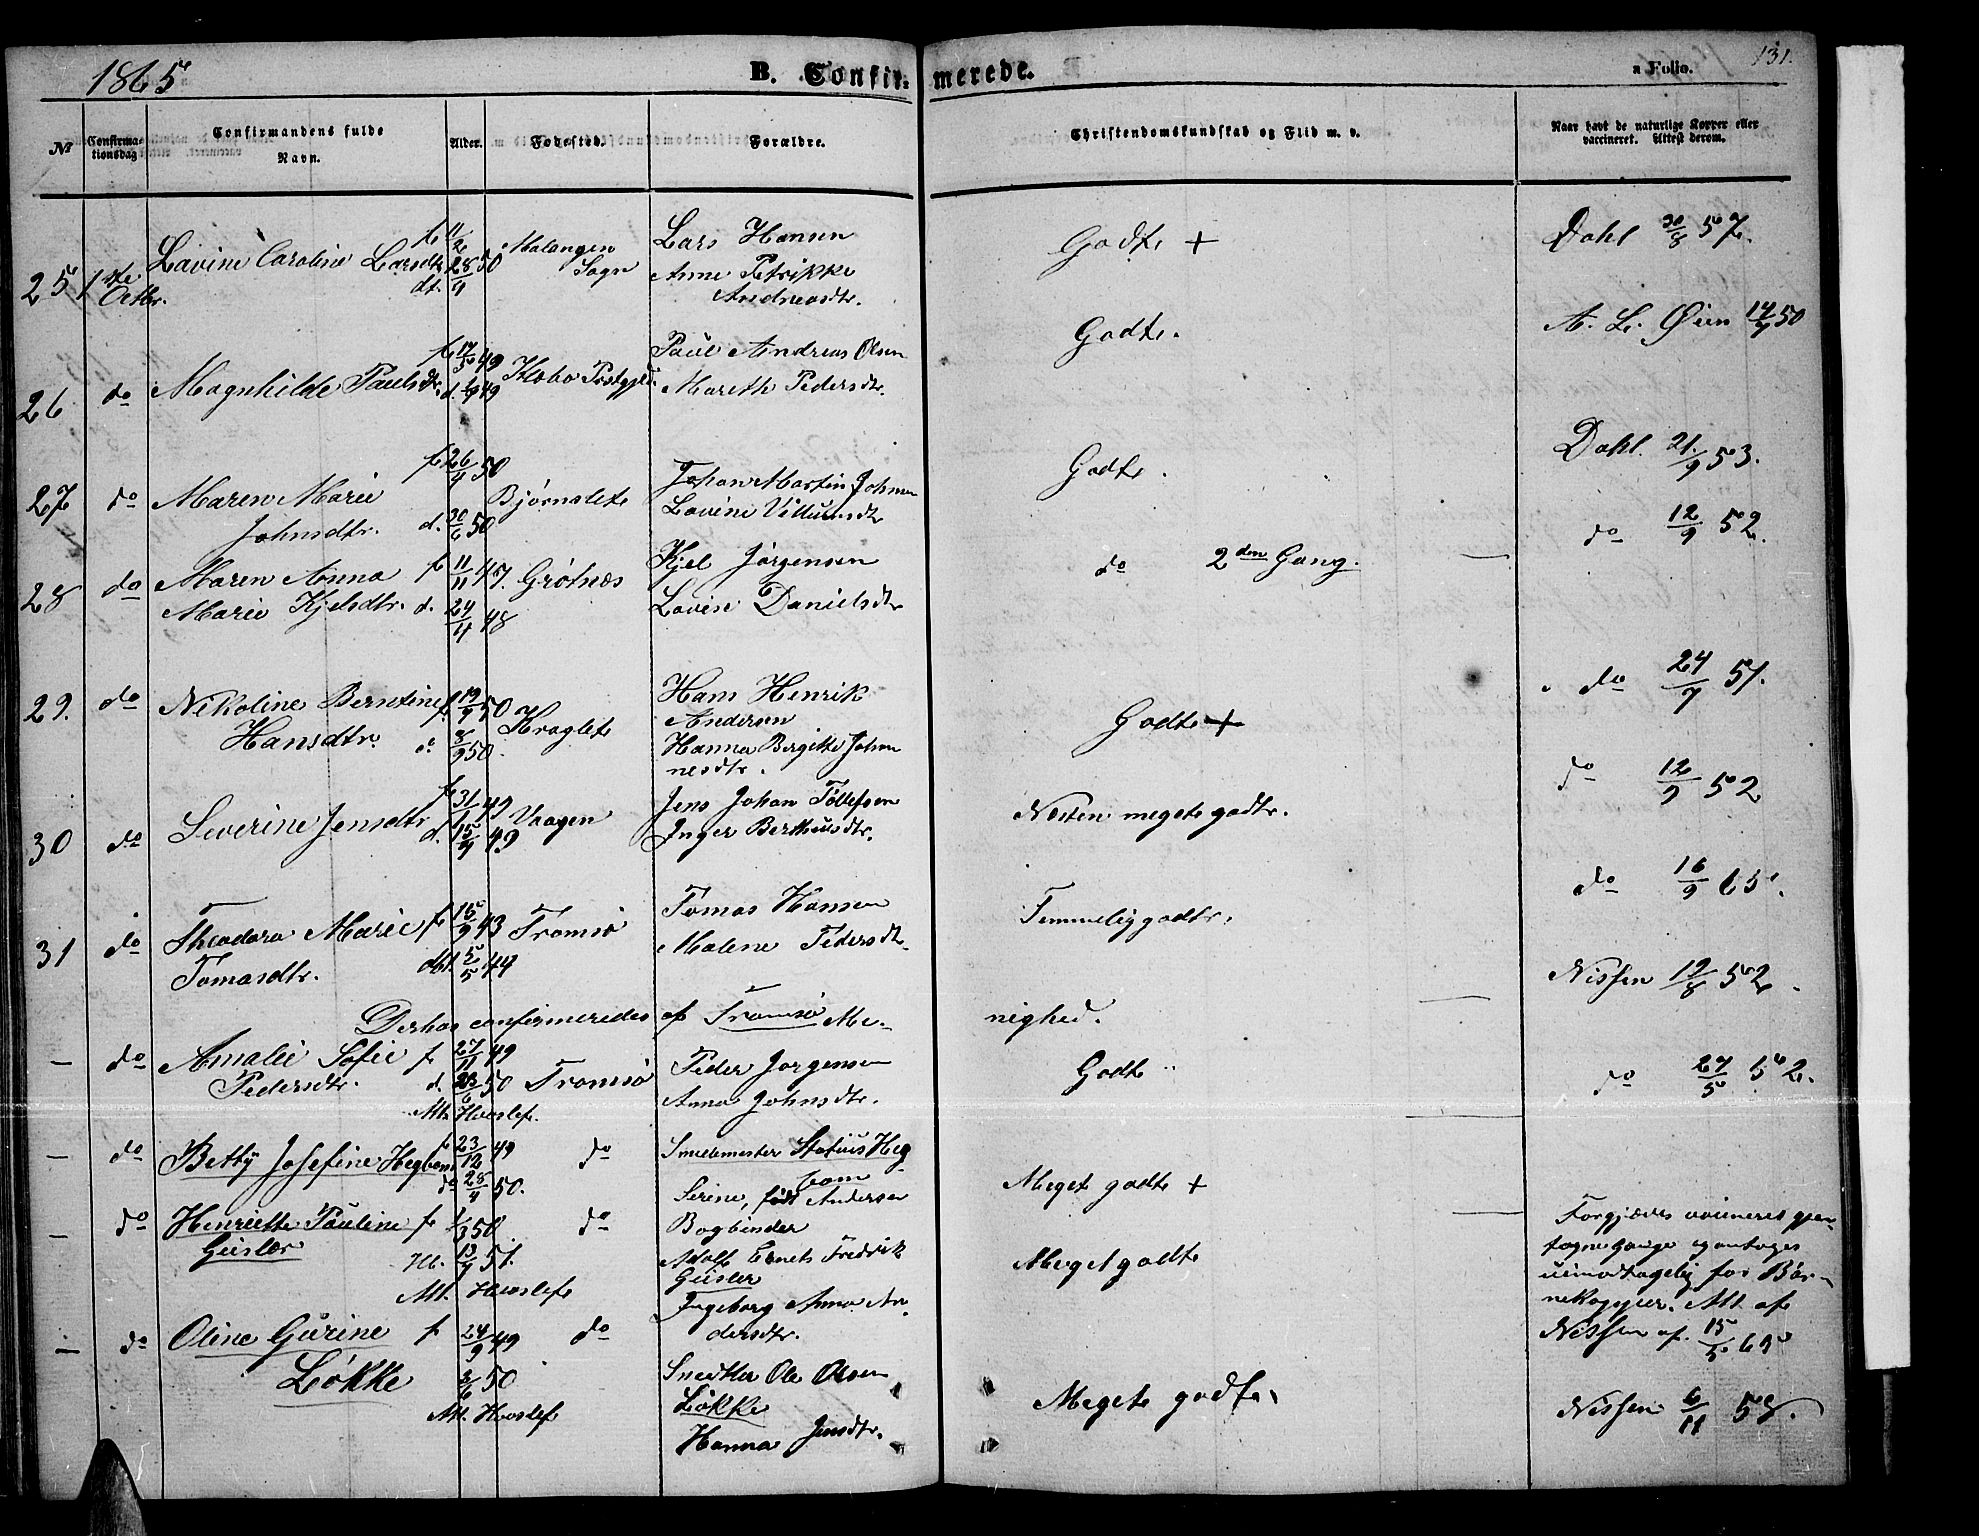 1865 B. Confirmerede. a Folio. 131.
No Confirmationsdag Confirmandens fulde Navn. Alder. Fødested. Forældre. Christendomskundskab og Flid m. v. Naar havt de naturlige Kopper eller vaccineret. Attest derom.
f. 11/2 50 Malangen Lars Hansen Godt + Dahl 30/8 57.
25 1ste Octbr. Lavine Caroline Larsdtr. dt. 28/4 Sogn Anne Petrikke
Andreasdtr.
f. 17/5 49 Paul Andreas Olsen Godt. A. L. Øien 14/7 50
26 do Magnhilde Paulsdtr. d. 49 Klæbo Præstgjeld Mareth Pedersdtr.
27 do Maren Marie f. 26/4 50 Bjørnslet Johan Martin Johnsen Godt. Dahl 21/9 53.
Johnsdtr. d. 30/6 50 Lavine Villumsdtr
28 do Maren Anna f. 11/11 47. Grøtnæs Kjel Jørgensen do 2den Gang. do 12/9 52.
Marie Kjelsdtr. d. 24/4 48 Lovise Danielsdtr
29. do Nikoline Berntine f. 19/7 50 Kraglet Hans Henrik Godt + do 24/7 51.
Hansdtr. d. 8/9 50. Andersen
Hanna Bergitte Johan
nesdtr.
30 do Severine Jensdtr f. 31/1 49 Vaagen Jens Johan Tollefsen Næsten meget godt. do 12/9 52
d. 15/4 49 Inger Berthusdtr.
31 do Theodora Marie f. 16/9 43 Tromsø Tomas Hansen Temmelig godt. do 16/9 65.
Tomasdtr. dbt. 5/5 44 Malene Pedersdtr.
Derhos confirmeredes af Tromsø Me-
nighed.
- do Amalie Sofie f. 27/11 49 Tromsø Peder Jørgensen Godt Nissen 19/8 52.
Pedersdtr. d. 23/6 50 Anna Johnsdtr.
Att. Hvoslef.
- do Betty Josefine Hegbom f. 23/12 49 do Smedemester Statius Heg Meget godt + do 27/5 52.
do 28/4 50. bom
Serine, født Andersen
- do Henriette Pauline f. 1/3 50 do Bogbinder Meget godt Forgjæves vaccineret gjen-
Geisler H. 13/4 51. Adolf Ernets Fredrik tagne Gange og antages
Geisler uimodtagelig for Bør-
Att. Hvoslef Ingeborg Anna An nekopper. Att. af
dersdtr. Nissen af 15/5 65
- do Oline Gurine f. 24/9 49 do Snedker Ole Olsen Meget godt. Nissen 6/11 58.
Løkke 2/6 50 Løkke
Att. Hvoslef Hanna Jensdtr.